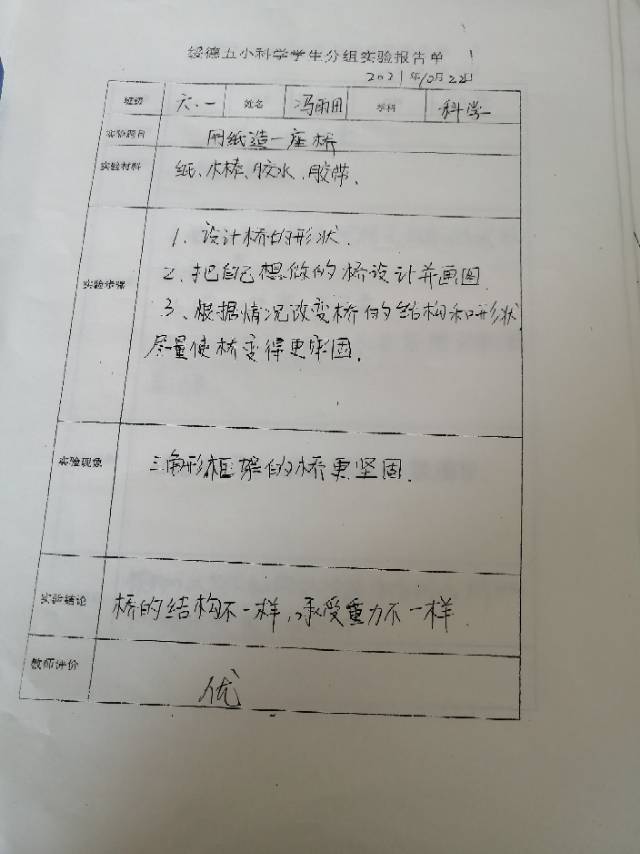 绥德五小科学学生分组实验报告单
2021年10月22日
班级 六.一 姓名 冯雨田 学科 科学
实验题目 用纸造一座桥
实验材料 纸、木棒、胶水、胶带.
实验步骤 1、设计桥的形状.
2、把自己想做的桥设计并画图
3、根据情况改变桥的结构和形状
尽量使桥变得更牢固.
实验现象 三角形框架的桥更坚固.
实验结论 桥的结构不一样,承受重力不一样.
教师评价 优